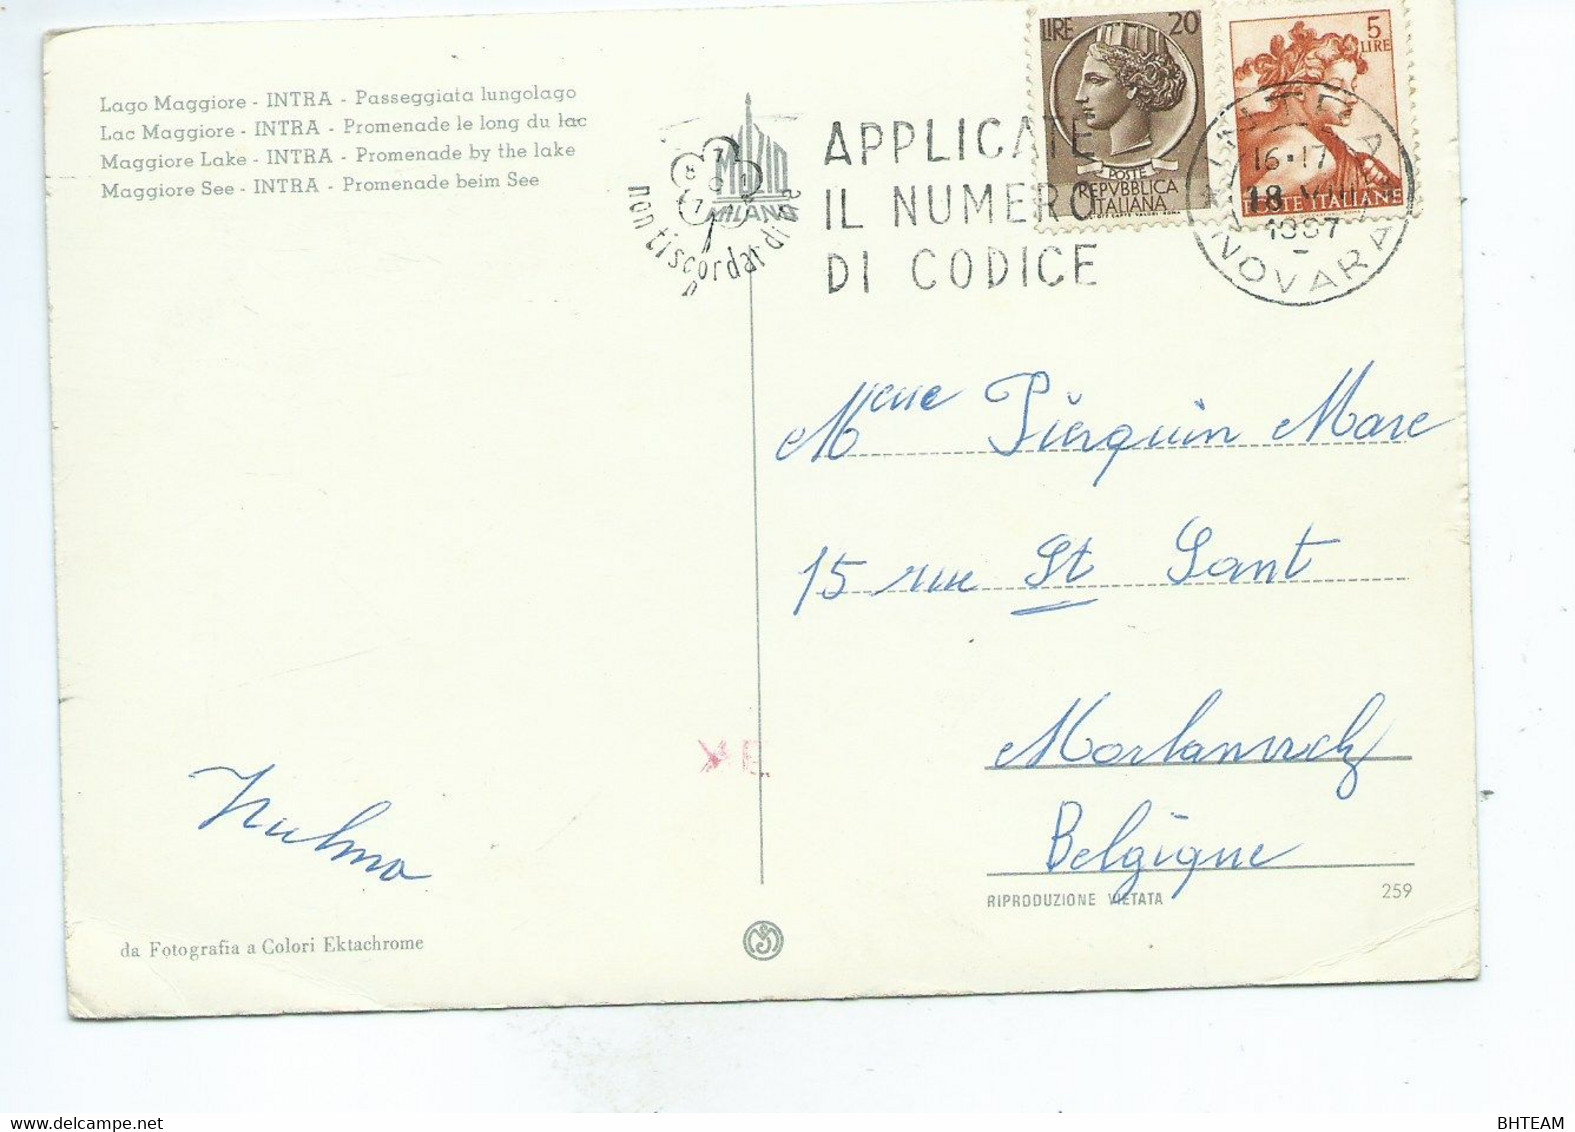 Lago Maggiore - INTRA - Passeggiata lungolago
Lac Maggiore - INTRA - Promenade le long du lac
Maggiore Lake - INTRA - Promenade by the lake
Maggiore See - INTRA - Promenade beim See
MILANO
non ti scordar di
APPLICATE
IL NUMERO
DI CODICE
LIRE 20
POSTE
REPVBBLICA
ITALIANA
5
LIRE
POSTE ITALIANE
INTRA
16-17
18 VIII
1967
NOVARA
Mme Pierquin Marc
15 rue St
Belgique
RIPRODUZIONE VIETATA
259
da Fotografia a Colori Ektachrome
BHTEAM